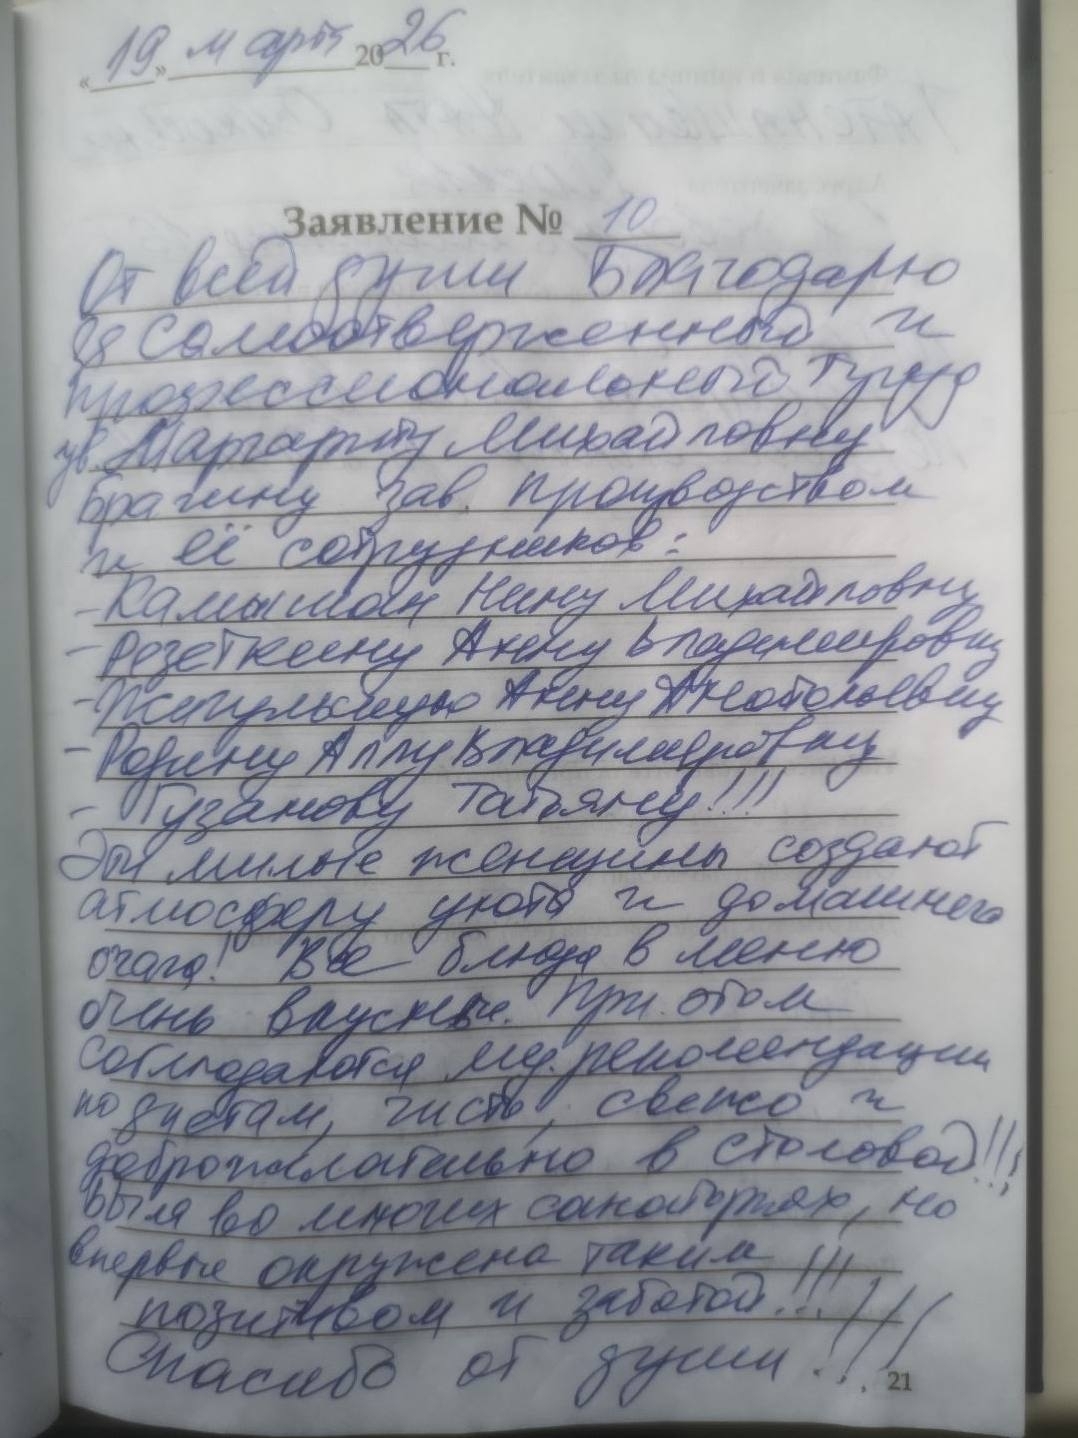 «19» марта 2026 г.
Заявление № 10
От всей души Благодарю
за самоотверженный и
профессиональный труд
ув. Маргариту Михайловну
Брагину зав. производством
и её сотрудников:
- Камышан Нину Михайловну
- Розеткину Алену Владимировну
- Жигульскую Алену Анатольевну
- Родину Аллу Владимировну
- Гузанову Татьяну!!!
Эти милые женщины создают
атмосферу уюта и домашнего
очага! Все блюда в меню
очень вкусные. При этом
соблюдаются мед. рекомендации
по диетам, чисто, свежо и
доброжелательно в столовой!!!
Была во многих санаториях, но
впервые окружена таким
позитивом и заботой!!!
Спасибо от души!!!
21